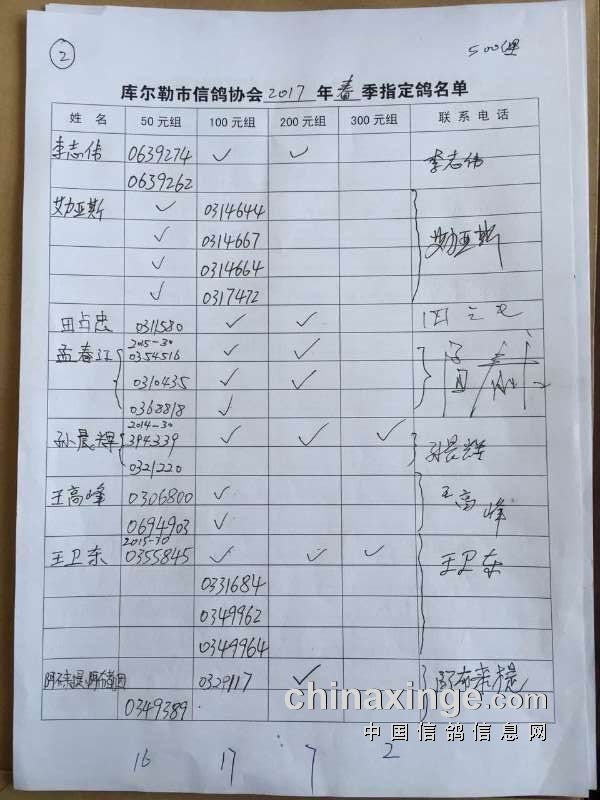 ② 500组
库尔勒市信鸽协会 2017 年 春 季指定鸽名单
姓名 50元组 100元组 200元组 300元组 联系电话
李志伟 0639274 ✓ ✓ 李志伟
0639262
艾力亚斯 ✓ 0314644 艾力亚斯
✓ 0314667
✓ 0314664
✓ 0317472
田占忠 0311580 ✓ ✓
孟春江 2015-30 0354516 ✓ ✓
0310435 ✓ ✓
0368818 ✓
孙晨辉 2014-30 394339 ✓ ✓ ✓ 孙晨辉
0321220
王高峰 0306800 ✓ 王高峰
0694903 ✓
王卫东 2015-30 0355845 ✓ ✓ ✓ 王卫东
0331684
0349962
0349964
✓
0349389
chinaxinge.com
中国信鸽信息网
16 17 7 2